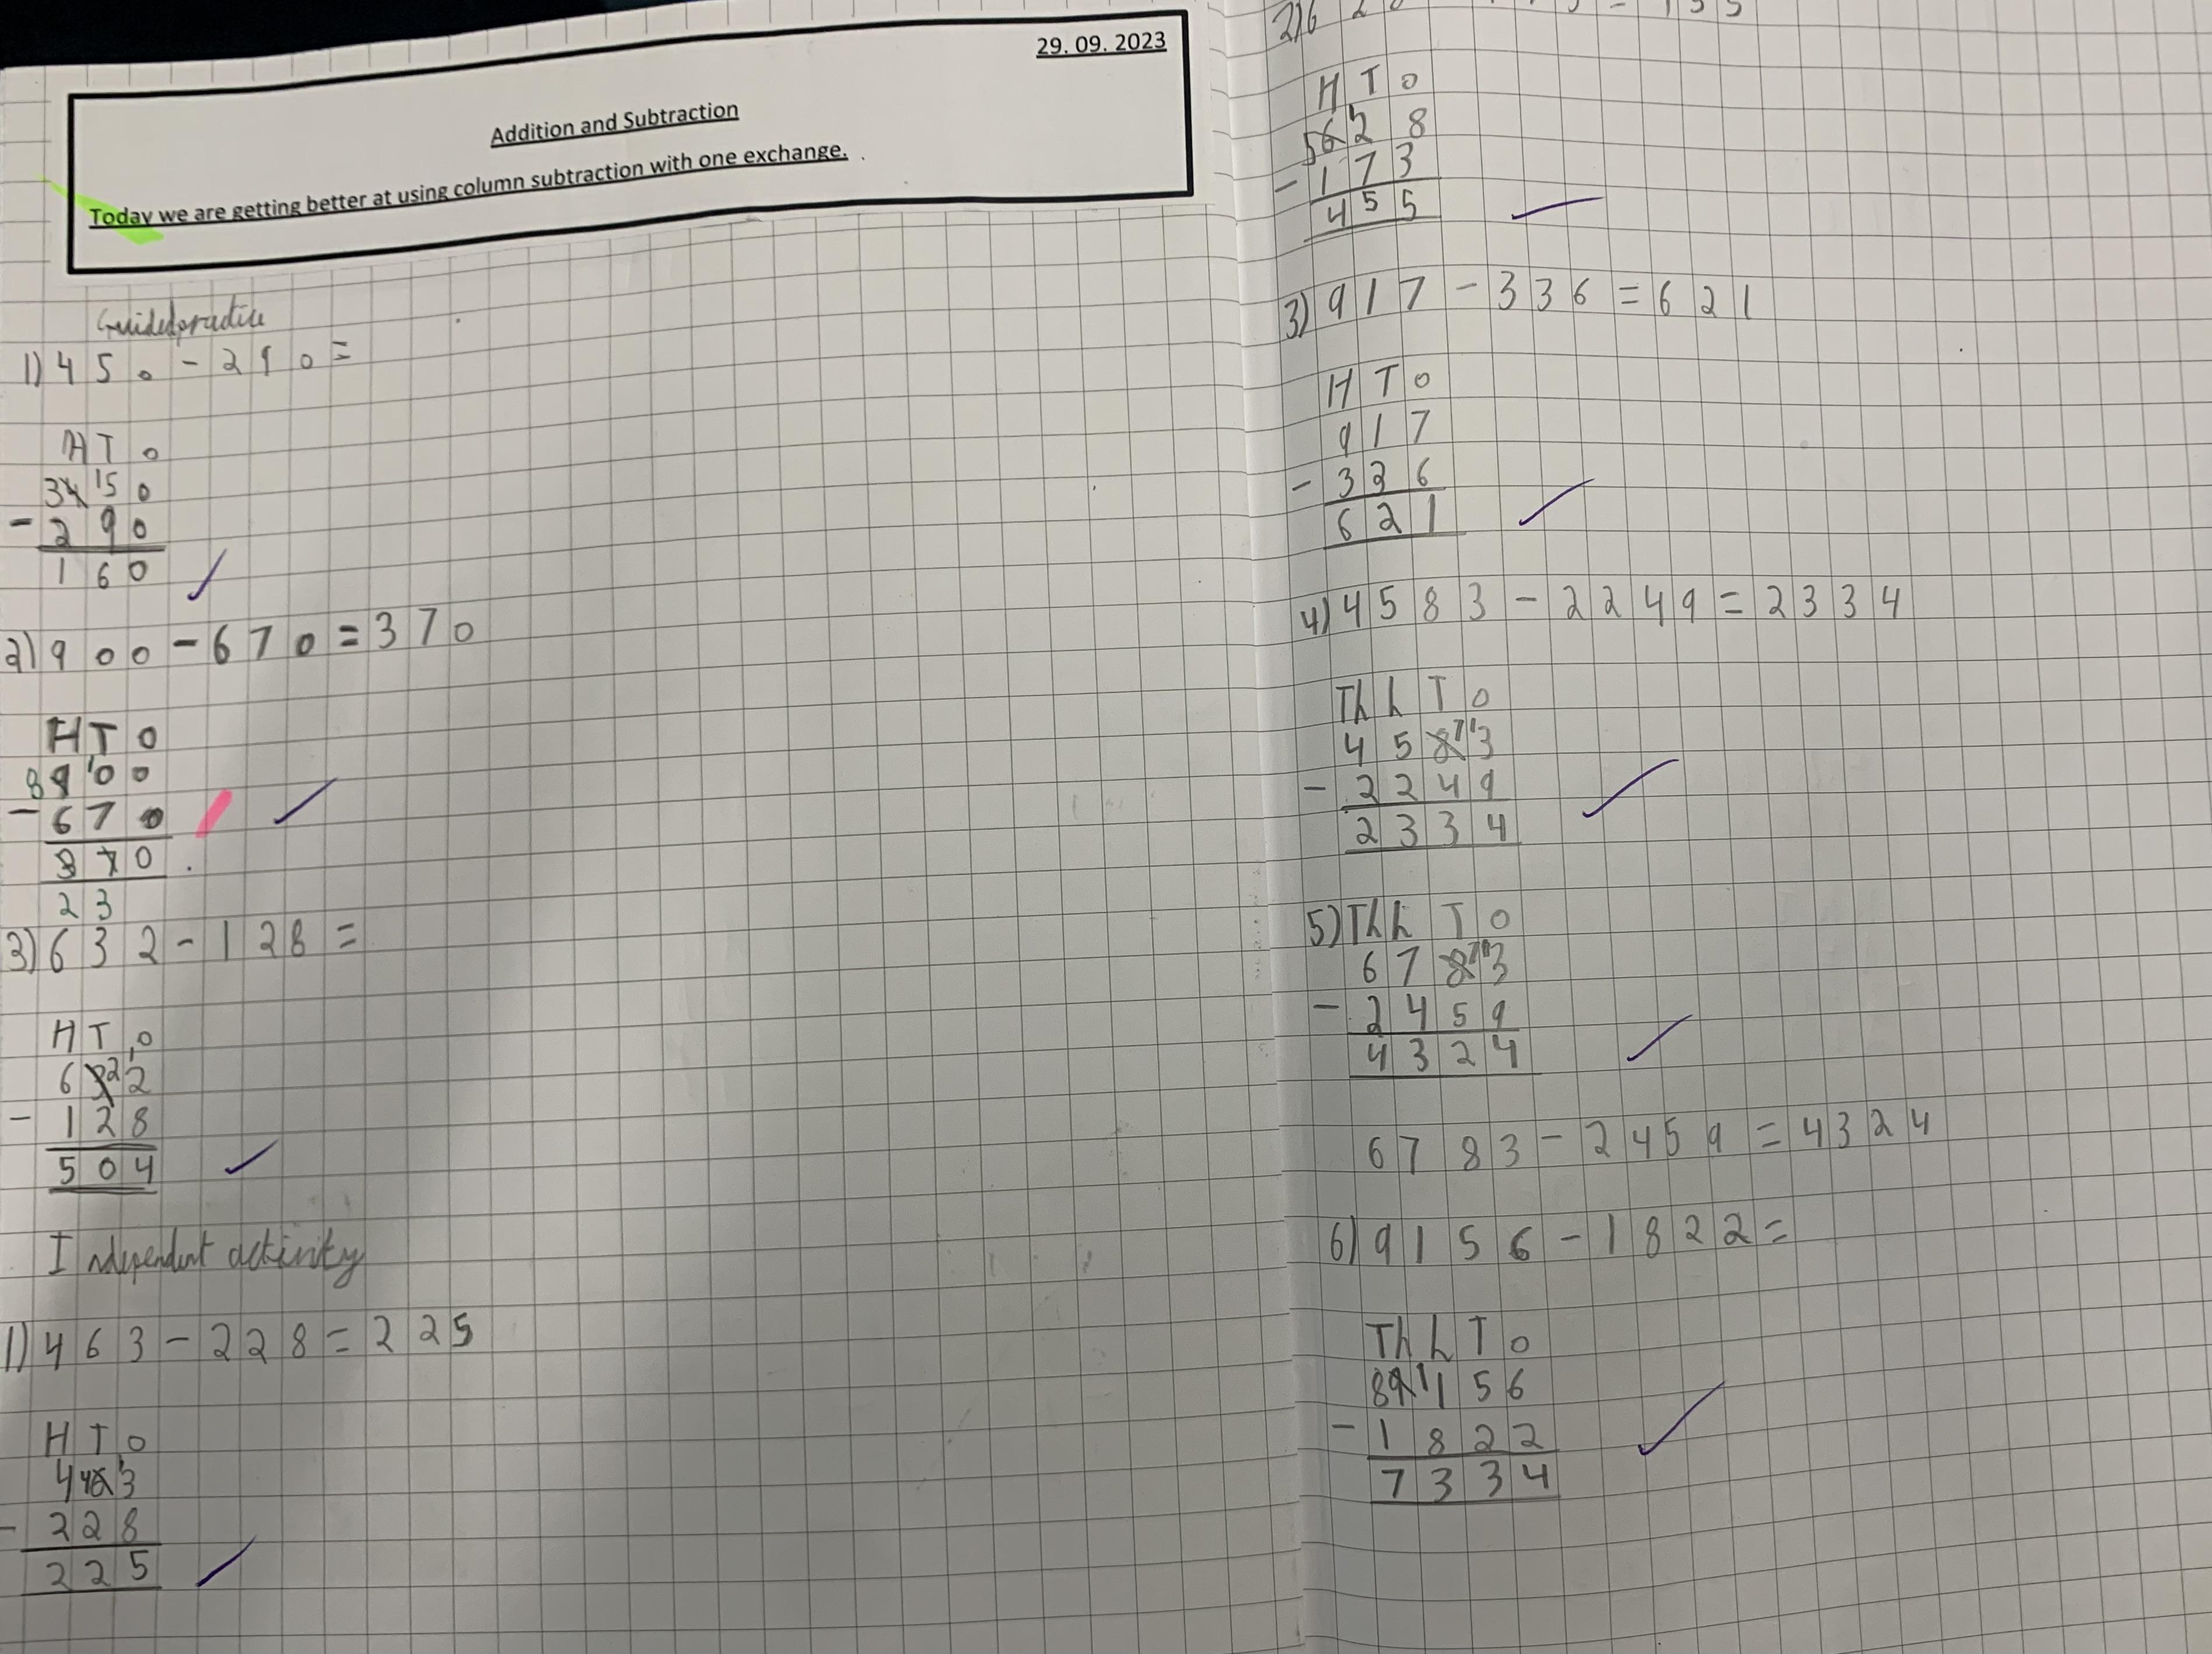 29. 09. 2023
Addition and Subtraction
Today we are getting better at using column subtraction with one exchange.
Guided practice
1) 450 - 290 =
H T O
3 4 15 0
- 290
160
2) 900 - 670 = 370
H T O
8 9 10 0
- 670
370
23
3) 632 - 128 =
H T O
6 3 2 12
- 128
504
Independent activity
1) 463 - 228 = 225
H T O
4 4 6 13
- 228
225
H T O
5 6 12 8
- 173
455
3) 917 - 336 = 621
H T O
917
- 326
621
4) 4583 - 2249 = 2334
Th h T O
4 5 8 7 13
- 2249
2334
5) Th h T O
6 7 8 7 13
- 2459
4324
6783 - 2459 = 4324
6) 9156 - 1822 =
Th h T O
8 9 11 5 6
- 1822
7334